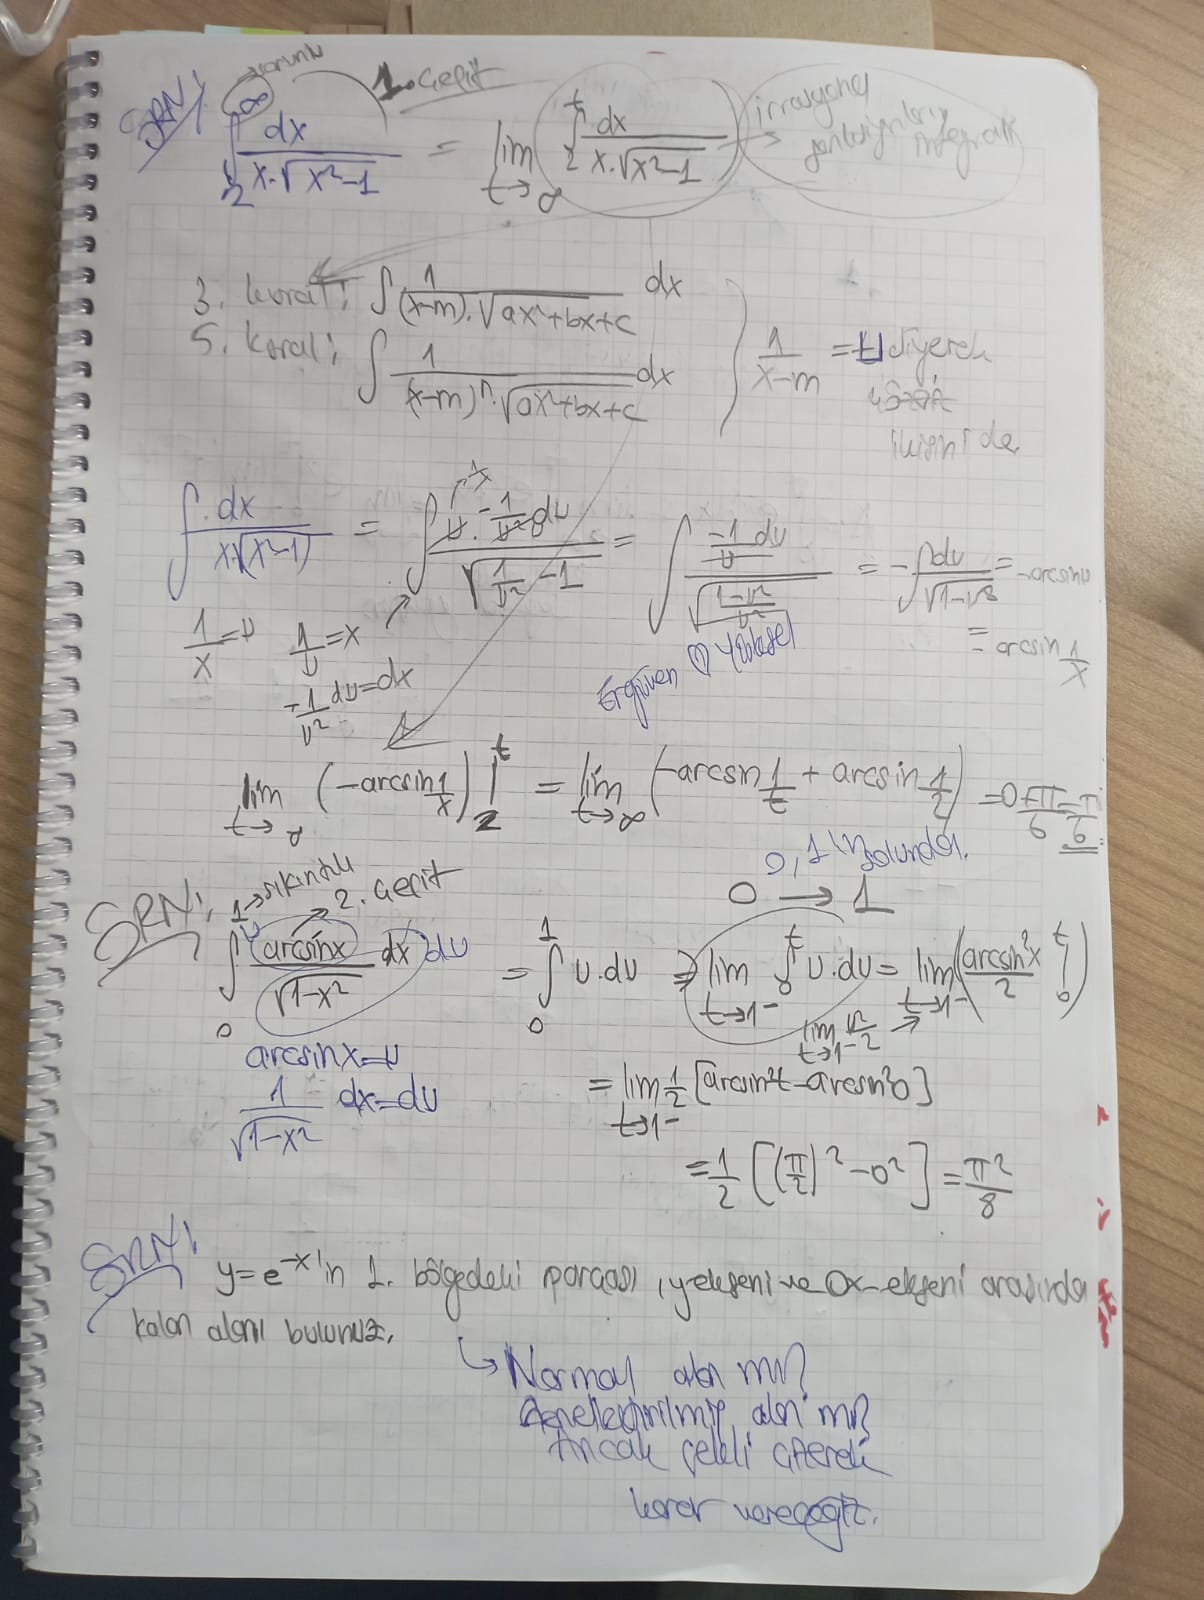 SRN!
sorunlu
1. Çeşit
∫₂^∞ dx / x.√x²-1 = lim t→∞ ∫₂^t dx / x.√x²-1 → irrasyonel fonksiyonların integrali
3. kural: ∫ 1 / (x-m).√ax²+bx+c dx
5. kural: ∫ 1 / (x-m)ⁿ.√ax²+bx+c dx
1/x-m = u diyerek
ikisini de.
∫ dx / x√(x²-1) = ∫ u.-1/u² du / √1/u² -1 = ∫ -1/u du / √1-u²/u² = -∫ du / √1-u² = -arcsinu
1/x = u 1/u = x = arcsin 1/x
-1/u² du = dx
Ergüven Yüksel
lim t→∞ (-arcsin 1/x) |₂^t = lim t→∞ (-arcsin 1/t + arcsin 1/2) = 0 + π/6 = π/6
0, 1'in solunda.
0 → 1
SRN!
1 → sıkıntılı
→ 2. Çeşit
∫₀ arcsinx / √1-x² dx du = ∫₀¹ u.du = lim t→1⁻ ∫₀^t u.du = lim t→1⁻ (arcsin²x / 2 |₀^t)
lim t→1⁻ u²/2
arcsinx = u
1 / √1-x² dx = du
= lim t→1⁻ 1/2 [arcsin²t - arcsin²0]
= 1/2 [(π/2)² - 0²] = π²/8
SRN!
y = e⁻ˣ'in 1. bölgedeki parçası, y-ekseni ve Ox-ekseni arasında
kalan alanı bulunuz.
↳ Normal alan mı?
Genelleştirilmiş alan mı?
Ancak şekli çizerek
karar vereceğiz.